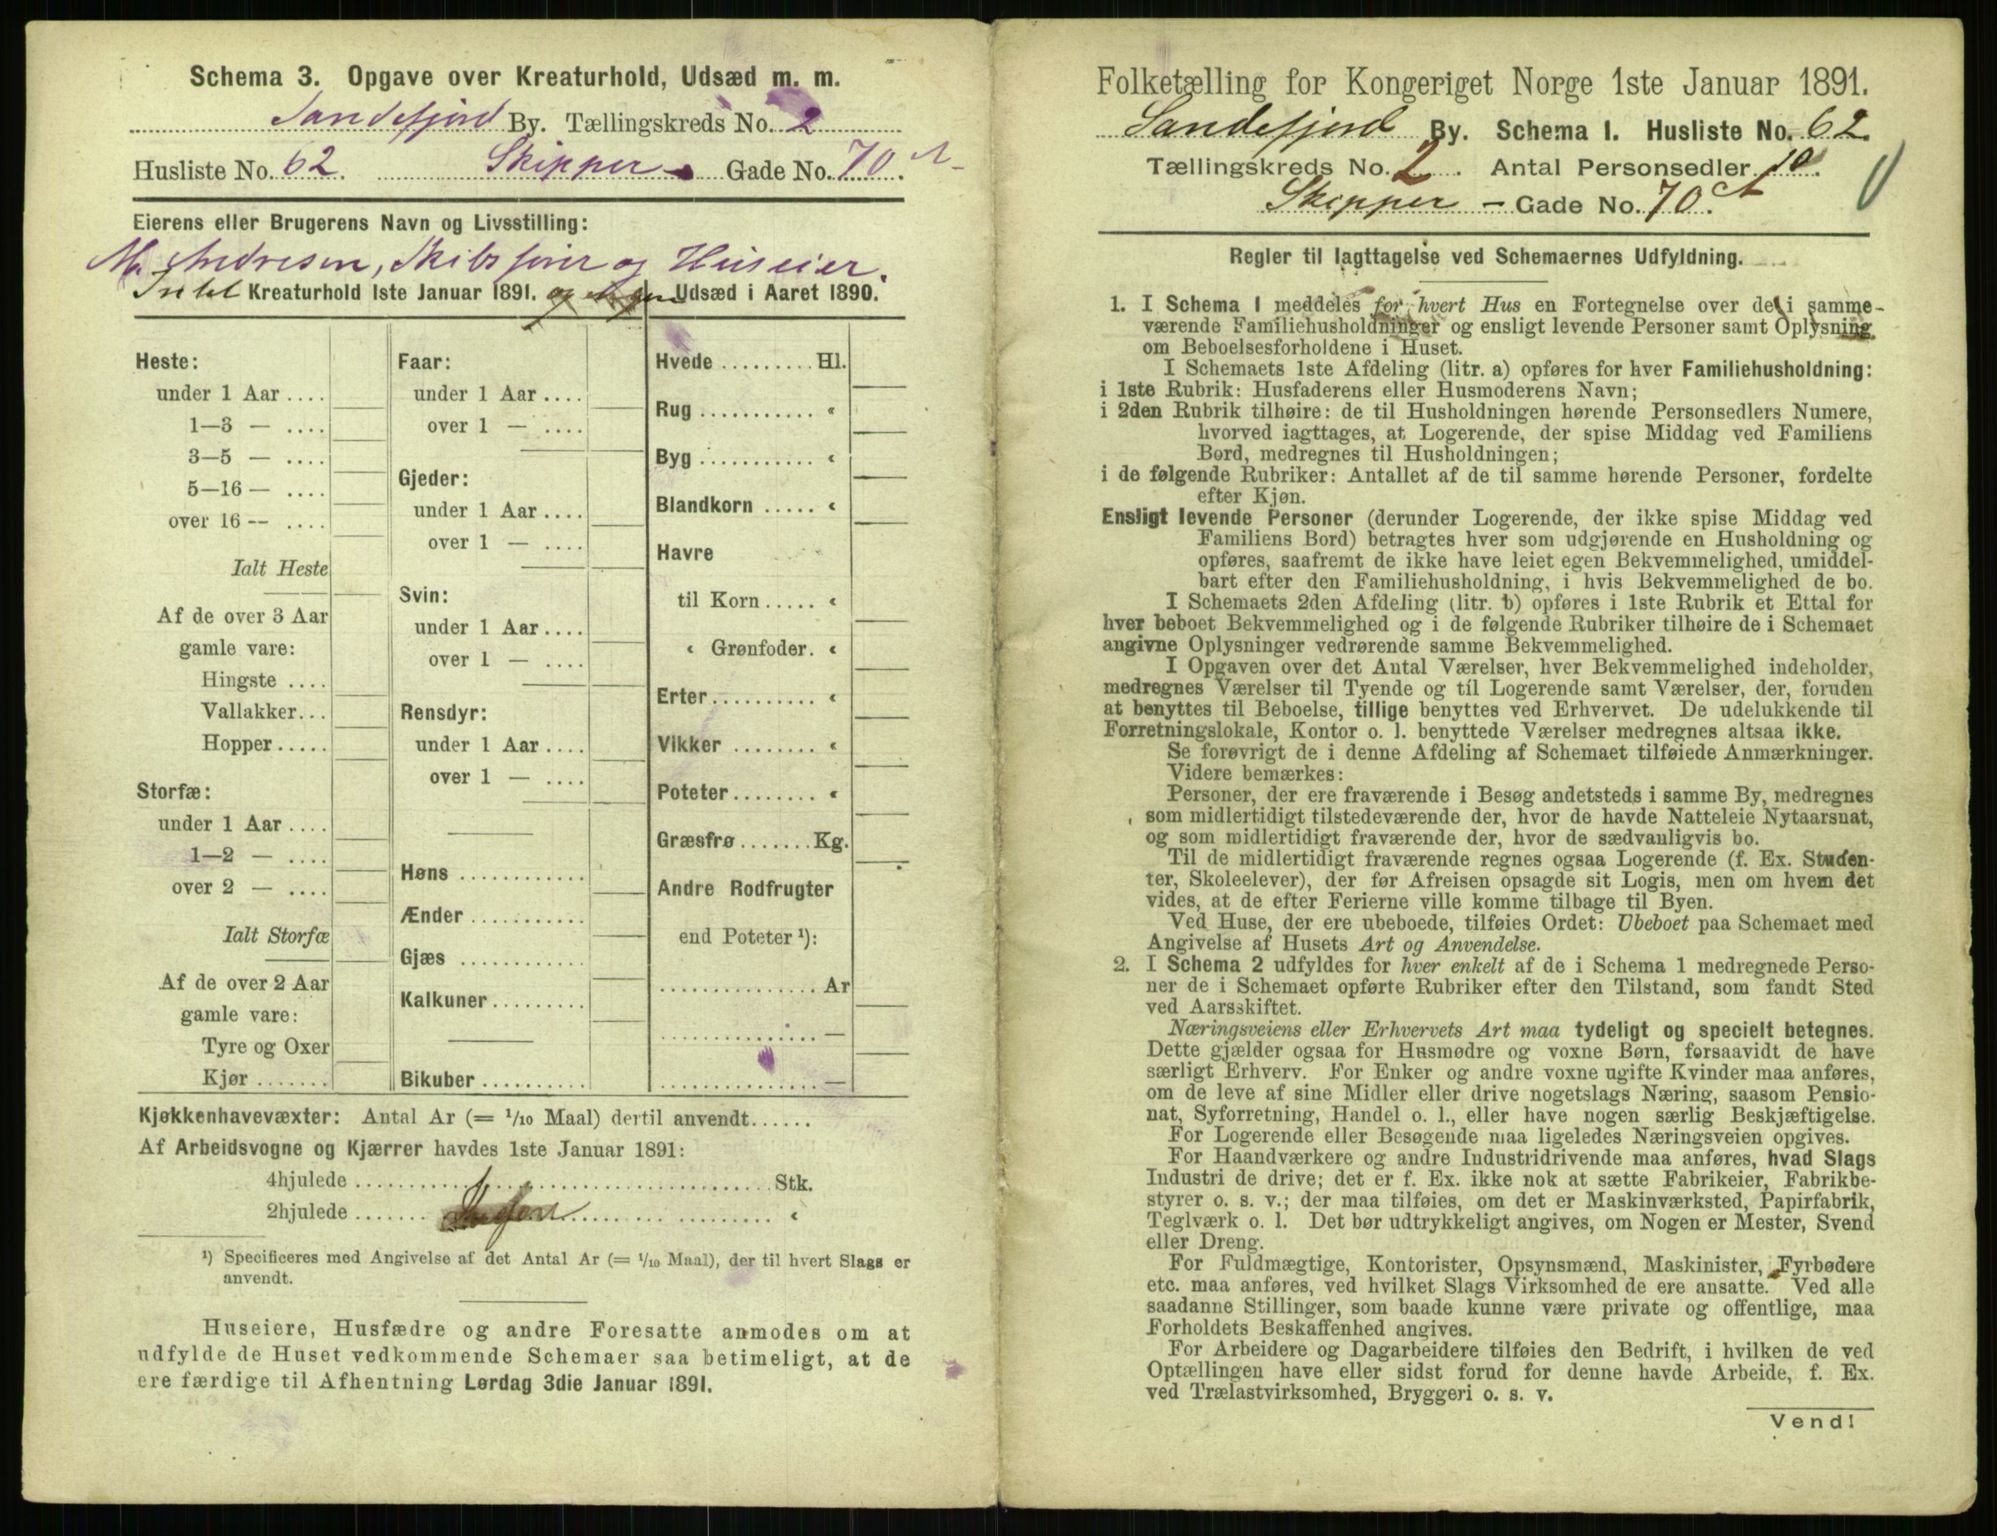 Schema 3. Opgave over Kreaturhold, Udsæd m. m.
Sandefjord By. Tællingskreds No. 2
Husliste No. 62. Skipper - Gade No. 70 A
Eierens eller Brugerens Navn og Livsstilling:
M. Andresen, Skibsfører og Huseier.
Intet Kreaturhold 1ste Januar 1891. og Ingen Udsæd i Aaret 1890.
Heste:
under 1 Aar ....
1—3 — ....
3—5 — ....
5—16 — ....
over 16 — ....
Ialt Heste
Af de over 3 Aar
gamle vare:
Hingste ....
Vallakker...
Hopper .....
Storfæ:
under 1 Aar ....
1—2 — ....
over 2 — ....
Ialt Storfæ
Af de over 2 Aar
gamle vare:
Tyre og Oxer
Kjør .......
Faar:
under 1 Aar ....
over 1 — ....
Gjeder:
under 1 Aar ....
over 1 — ....
Svin:
under 1 Aar ....
over 1 — ....
Rensdyr:
under 1 Aar ....
over 1 — ....
Høns ............
Ænder ...........
Gjæs ............
Kalkuner.........
Bikuber ..........
Hvede ......... Hl.
Rug ........... «
Byg ........... «
Blandkorn ..... «
Havre
til Korn..... «
« Grønfoder. «
Erter.......... «
Vikker ........ «
Poteter........ «
Græsfrø ....... Kg.
Andre Rodfrugter
end Poteter ¹):
............... Ar
............... —
............... —
Kjøkkenhavevæxter: Antal Ar (= 1/10 Maal) dertil anvendt......
Af Arbeidsvogne og Kjærrer havdes 1ste Januar 1891:
4hjulede ........................................ Stk.
2hjulede ....... Ingen ................ «
¹) Specificeres med Angivelse af det Antal Ar (= 1/10 Maal), der til hvert Slags er
anvendt.
Huseiere, Husfædre og andre Foresatte anmodes om at
udfylde de Huset vedkommende Schemaer saa betimeligt, at de
ere færdige til Afhentning Lørdag 3die Januar 1891.
Folketælling for Kongeriget Norge 1ste Januar 1891.
Sandefjord By. Schema 1. Husliste No. 62.
Tællingskreds No. 2. Antal Personsedler 10.
Skipper - Gade No. 70. A
Regler til Iagttagelse ved Schemaernes Udfyldning.
1. I Schema 1 meddeles for hvert Hus en Fortegnelse over de i samme-
værende Familiehusholdninger og ensligt levende Personer samt Oplysning
om Beboelsesforholdene i Huset.
I Schemaets 1ste Afdeling (litr. a) opføres for hver Familiehusholdning:
i 1ste Rubrik: Husfaderens eller Husmoderens Navn;
i 2den Rubrik tilhøire: de til Husholdningen hørende Personsedlers Numere,
hvorved iagttages, at Logerende, der spise Middag ved Familiens
Bord, medregnes til Husholdningen;
i de følgende Rubriker: Antallet af de til samme hørende Personer, fordelte
efter Kjøn.
Ensligt levende Personer (derunder Logerende, der ikke spise Middag ved
Familiens Bord) betragtes hver som udgjørende en Husholdning og
opføres, saafremt de ikke have leiet egen Bekvemmelighed, umiddel-
bart efter den Familiehusholdning, i hvis Bekvemmelighed de bo.
I Schemaets 2den Afdeling (litr. b) opføres i 1ste Rubrik et Ettal for
hver beboet Bekvemmelighed og i de følgende Rubriker tilhøire de i Schemaet
angivne Oplysninger vedrørende samme Bekvemmelighed.
I Opgaven over det Antal Værelser, hver Bekvemmelighed indeholder,
medregnes Værelser til Tyende og til Logerende samt Værelser, der, foruden
at benyttes til Beboelse, tillige benyttes ved Erhvervet. De udelukkende til
Forretningslokale, Kontor o. l. benyttede Værelser medregnes altsaa ikke.
Se forøvrigt de i denne Afdeling af Schemaet tilføiede Anmærkninger.
Videre bemærkes:
Personer, der ere fraværende i Besøg andetsteds i samme By, medregnes
som midlertidigt tilstedeværende der, hvor de havde Natteleie Nytaarsnat,
og som midlertidigt fraværende der, hvor de sædvanligvis bo.
Til de midlertidigt fraværende regnes ogsaa Logerende (f. Ex. Studen-
ter, Skoleelever), der før Afreisen opsagde sit Logis, men om hvem det
vides, at de efter Ferierne ville komme tilbage til Byen.
Ved Huse, der ere ubeboede, tilføies Ordet: Ubeboet paa Schemaet med
Angivelse af Husets Art og Anvendelse.
2. I Schema 2 udfyldes for hver enkelt af de i Schema 1 medregnede Perso-
ner de i Schemaet opførte Rubriker efter den Tilstand, som fandt Sted
ved Aarsskiftet.
Næringsveiens eller Erhvervets Art maa tydeligt og specielt betegnes.
Dette gjælder ogsaa for Husmødre og voxne Børn, forsaavidt de have
særligt Erhverv. For Enker og andre voxne ugifte Kvinder maa anføres,
om de leve af sine Midler eller drive nogetslags Næring, saasom Pensio-
nat, Syforretning, Handel o. l., eller have nogen særlig Beskjæftigelse.
For Logerende eller Besøgende maa ligeledes Næringsveien opgives.
For Haandværkere og andre Industridrivende maa anføres, hvad Slags
Industri de drive; det er f. Ex. ikke nok at sætte Fabrikeier, Fabrikbe-
styrer o. s. v.; der maa tilføies, om det er Maskinværksted, Papirfabrik,
Teglværk o. l. Det bør udtrykkeligt angives, om Nogen er Mester, Svend
eller Dreng.
For Fuldmægtige, Kontorister, Opsynsmænd, Maskinister, Fyrbødere
etc. maa anføres, ved hvilket Slags Virksomhed de ere ansatte. Ved alle
saadanne Stillinger, som baade kunne være private og offentlige, maa
Forholdets Beskaffenhed angives.
For Arbeidere og Dagarbeidere tilføies den Bedrift, i hvilken de ved
Optællingen have eller sidst forud for denne havde Arbeide, f. Ex.
ved Trælastvirksomhed, Bryggeri o. s. v.
Vend!